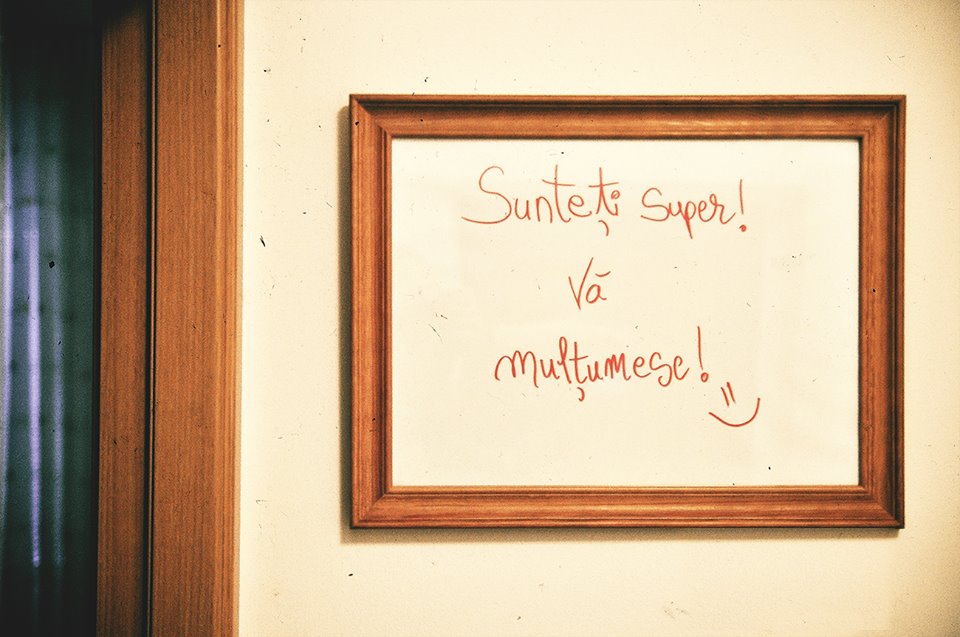 Sunteți super!
Vă
mulțumesc!